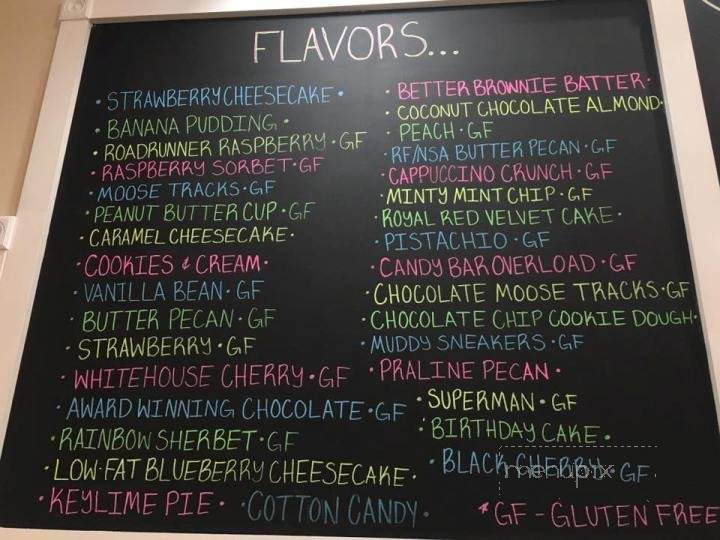 FLAVORS...
• STRAWBERRY CHEESECAKE •
• BANANA PUDDING •
• ROADRUNNER RASPBERRY • GF
• RASPBERRY SORBET • GF
• MOOSE TRACKS • GF
• PEANUT BUTTER CUP • GF
• CARAMEL CHEESECAKE •
• COOKIES & CREAM •
• VANILLA BEAN • GF
• BUTTER PECAN • GF
• STRAWBERRY • GF
• WHITEHOUSE CHERRY • GF
• AWARD WINNING CHOCOLATE • GF
• RAINBOW SHERBET • GF
• LOW-FAT BLUEBERRY CHEESECAKE •
• KEYLIME PIE •
• COTTON CANDY •
• BETTER BROWNIE BATTER •
• COCONUT CHOCOLATE ALMOND •
• PEACH • GF
• RF/NSA BUTTER PECAN • GF
• CAPPUCCINO CRUNCH • GF
• MINTY MINT CHIP • GF
• ROYAL RED VELVET CAKE •
• PISTACHIO • GF
• CANDY BAR OVERLOAD • GF
• CHOCOLATE MOOSE TRACKS • GF
• CHOCOLATE CHIP COOKIE DOUGH •
• MUDDY SNEAKERS • GF
• PRALINE PECAN •
• SUPERMAN • GF
• BIRTHDAY CAKE •
• BLACK CHERRY • GF
menupix
* GF - GLUTEN FREE